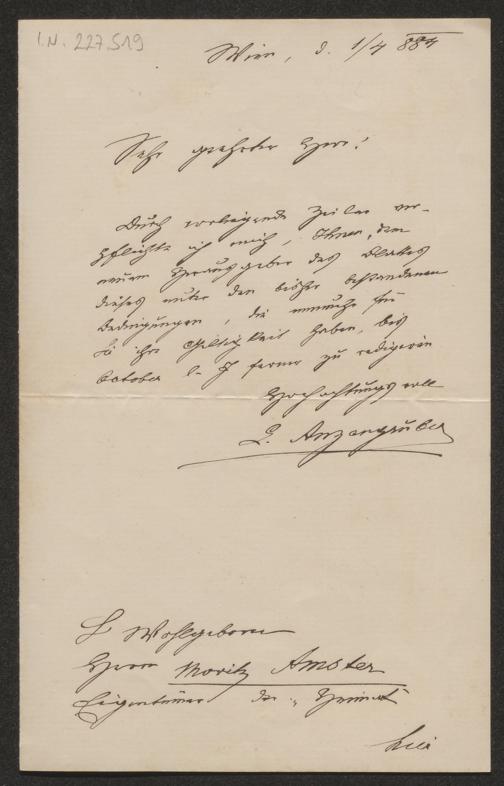 I.N. 227.519
Wien, d. 1/4 884
Sehr geehrter Herr!
Durch vorliegende Zeilen ver-
pflichte ich mich, Ihnen, dem
neuen Herausgeber des Blattes
dieses unter den bisher bestandenen
Bedingungen, die nunmehr für
Sie ihre Giltigkeit haben, bis
October l. J. ferner zu redigieren
Hochachtungsvoll
L. Anzengruber
Sr Wohlgeboren
Herrn Moritz Amster
Eigentümer der „Heimat"